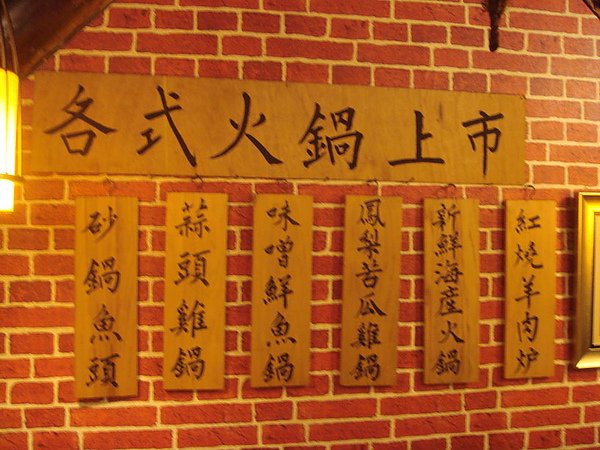 各式火鍋上市
紅燒羊肉炉
新鮮海產火鍋
鳳梨苦瓜雞鍋
味噌鮮魚鍋
蒜頭雞鍋
砂鍋魚頭